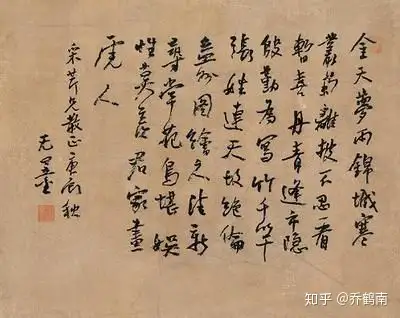 金天夢雨錦城寒
叢菊離披不忍看
暫喜丹青逢市隱
殷勤為寫竹千竿
張 連天 絕倫
益州圖繪 新
尋常花鳥堪娛
性莫 君家畫
虎人
采芹兄教正庚辰秋
无量
知乎 @乔鹤南